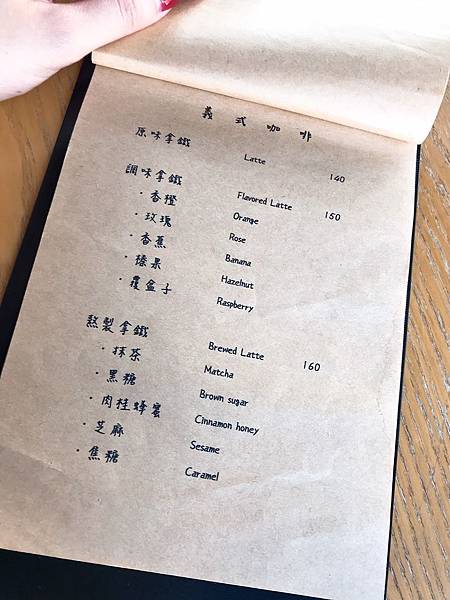 義式咖啡
原味拿鐵 Latte 140
調味拿鐵 Flavored Latte 150
·香橙 Orange
·玫瑰 Rose
·香蕉 Banana
·榛果 Hazelnut
·覆盆子 Raspberry
熬製拿鐵 Brewed Latte 160
·抹茶 Matcha
·黑糖 Brown sugar
·肉桂蜂蜜 Cinnamon honey
·芝麻 Sesame
·焦糖 Caramel